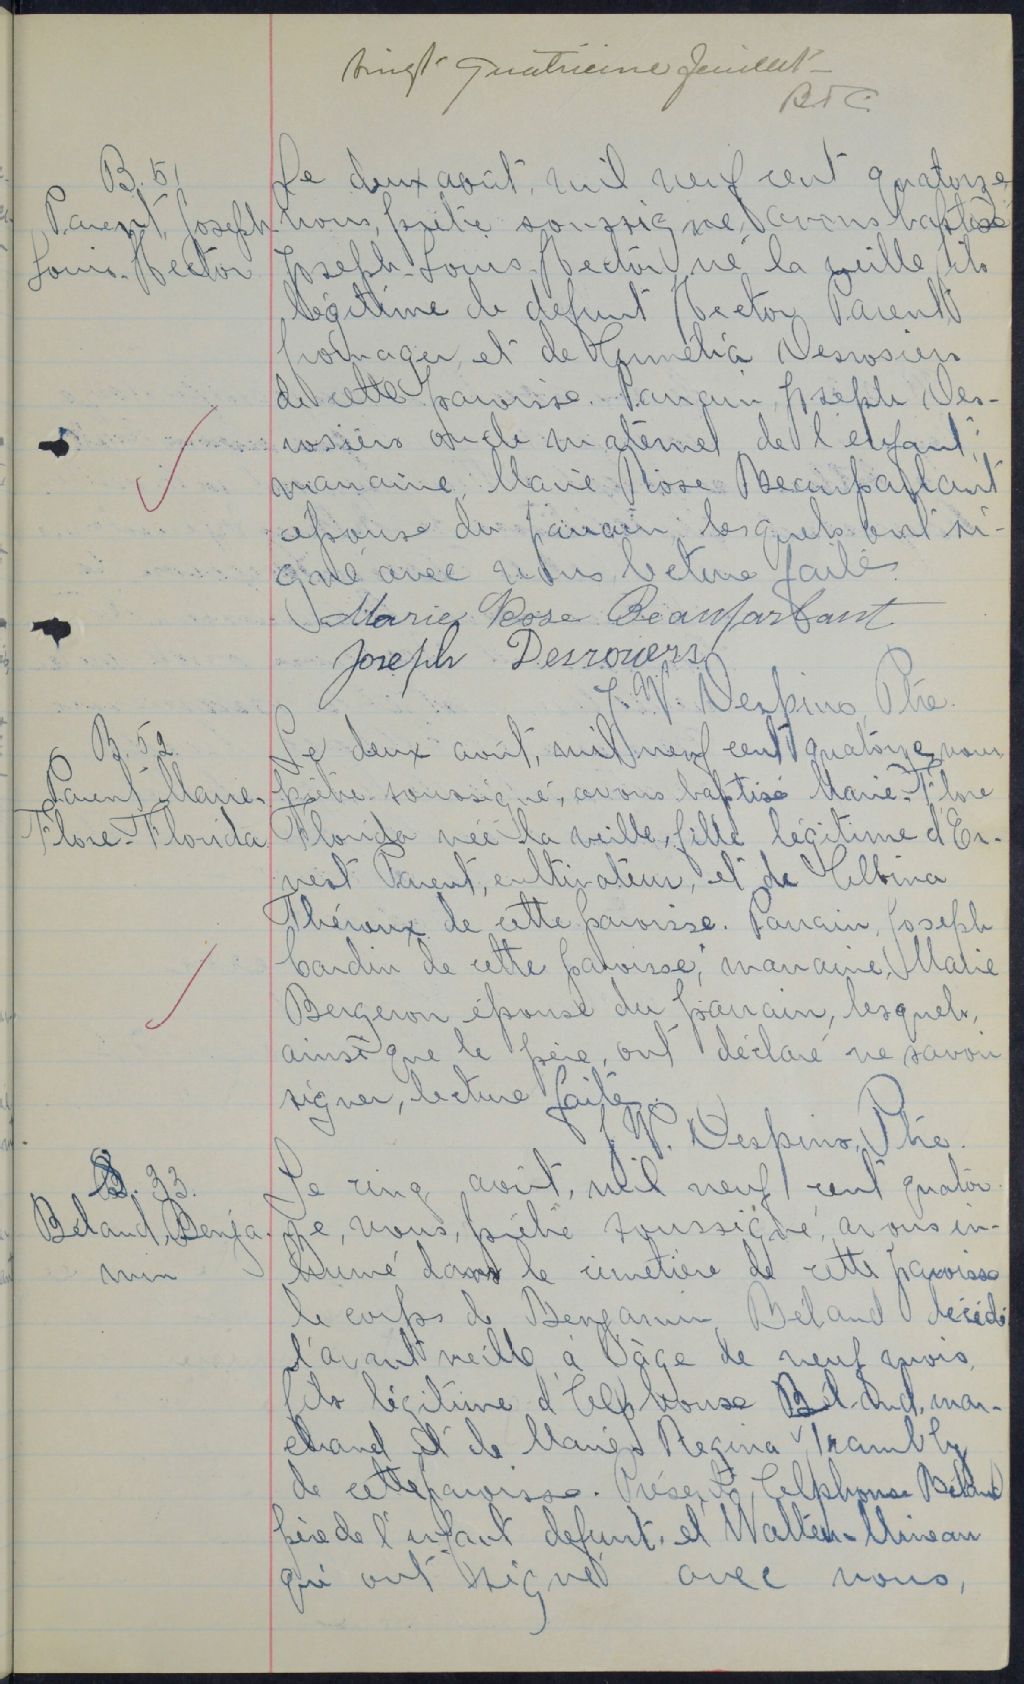 vingt quatrième Juillet
B. 51
Parent, Joseph
Louis-Hector
Le deux août, mil neuf cent quatorze
nous, prêtre soussigné, avons baptisé
Joseph-Louis-Hector, né la veille, fils
légitime de défunt Hector Parent
fromager, et de Amélia Desrosiers
de cette paroisse. Parrain, Joseph Des-
rosiers oncle maternel de l'enfant;
marraine, Marie Rose Beauparlant
épouse du parrain, lesquels ont si-
gné avec nous, lecture faite
Marie Rose Beauparlant
Joseph Desrosiers
J. W. Despins, Ptre.
B. 52
Parent Marie-
Flore-Florida
Le deux août, mil neuf cent quatorze, nous
prêtre soussigné, avons baptisé Marie-Flore
Florida née la veille, fille légitime d'Er-
nest Parent, cultivateur, et de Albina
Théroux de cette paroisse. Parrain, Joseph
Cardin de cette paroisse; marraine, Marie
Bergeron épouse du parrain, lesquels,
ainsi que le père, ont déclaré ne savoir
signer, lecture faite.
J. W. Despins, Ptre.
S. 33.
Beland, Benja-
min
Le cinq août, mil neuf cent quator-
ze, nous, prêtre soussigné, avons in-
humé dans le cimetière de cette paroisse
le corps de Benjamin Béland décédé
l'avant veille à l'âge de neuf mois,
fils légitime d'Alphonse Béland, mar-
chand et de Marie Regina Trambly
de cette paroisse. Présents, Alphonse Béland
père de l'enfant défunt, et Walter Mineau
qui ont signé avec nous,